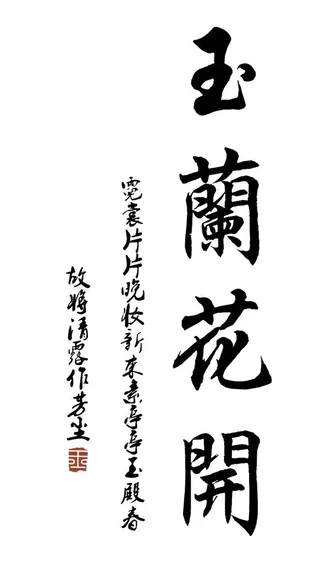 玉蘭花開
霓裳片片晚妆新束素亭亭玉殿春
故將清露作芳塵